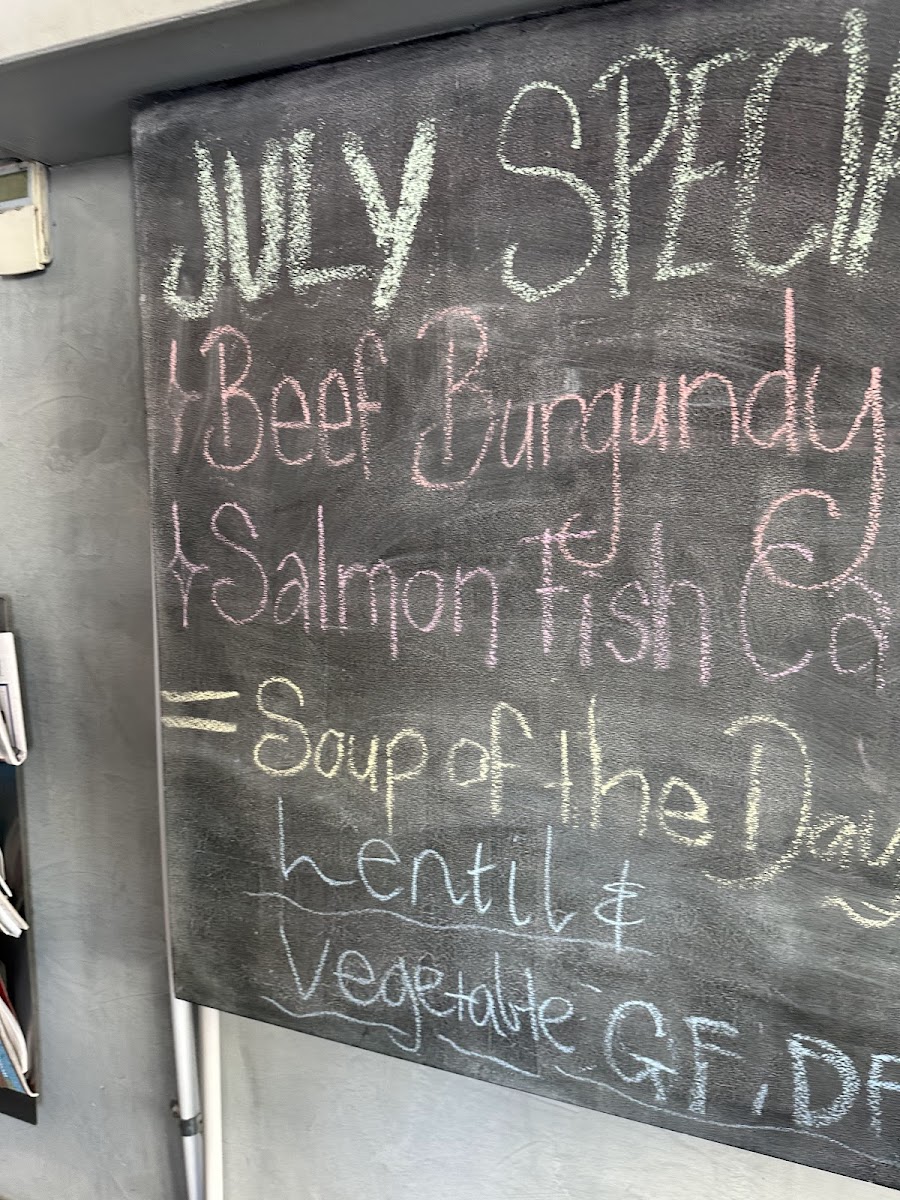 JULY SPECIA
Beef Burgundy
Salmon Fish Ca
= Soup of the Day
Lentil &
Vegetable GF, DF